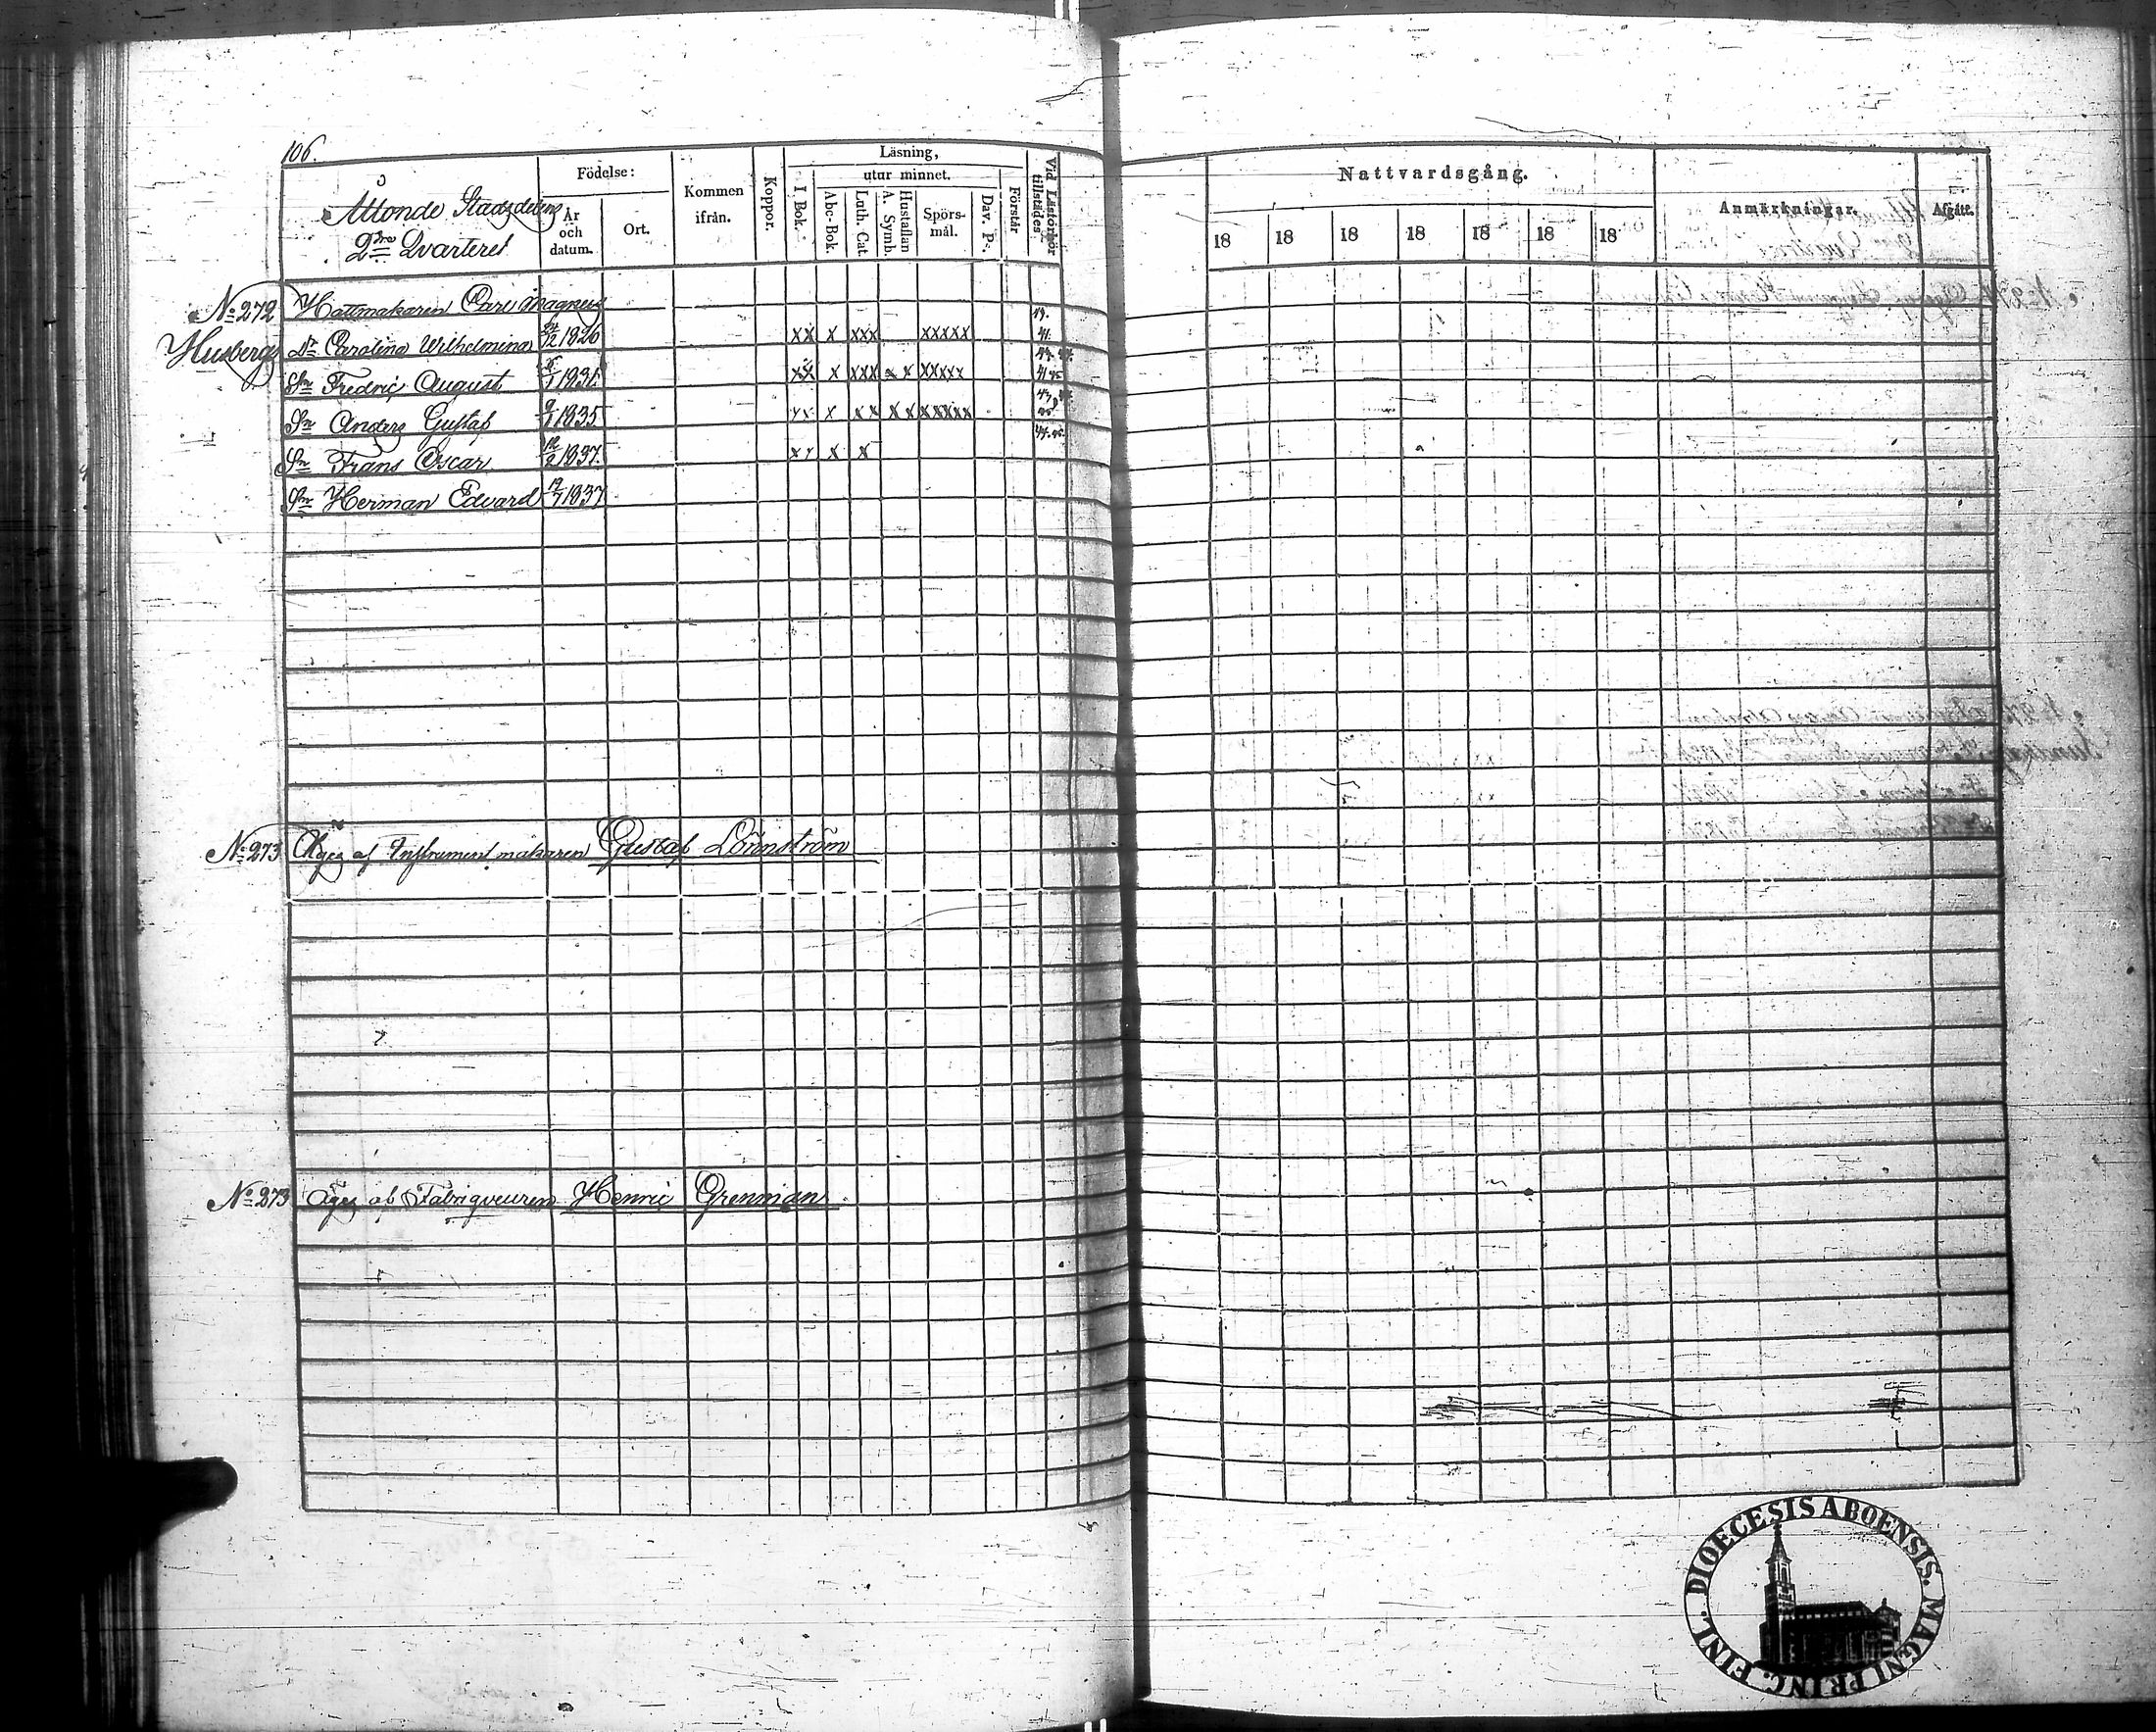 106.
Åttonde Stadsdelens
2dra Qvarteret
Födelse:
År och datum.
Ort.
Kommen ifrån.
Koppor.
Läsning,
utur minnet.
I Bok.
Abc-Bok.
Luth. Cat.
A. Symb. Hustaflan
Spörs-mål.
Dav. P.
Förstår
Vid Läsförhör tillstädes.
Nattvardsgång.
18 18 18 18 18 18 18
Anmärkningar.
Afgått.
No 272 Hattmakaren Carl Magnus
Husberg
Dr Carolina Wilhelmina 24/12 1826 xx x xxx xxxxx 41.
Sn Fredric August 1831. xx x xxx x x xxxxx
Sn Anders Gustaf 1835 xx x xx x x xxxxx
Sn Frans Oscar 12/2 1837. xx x x
Sn Herman Edvard 12/7 1837
No 273 Äges af Instrumentmakaren Gustaf Lönnström
No 273 Äges af Fabriqueuren Henric Grenman
DIOECESIS ABOENSIS. MAGNI PRINC. FINL.